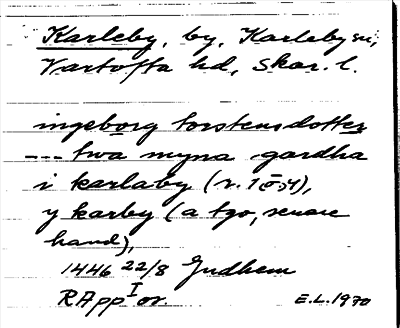 Karleby, by, Karleby sn,
Vartofta hd, Skar. l.
ingeborg torstensdotter
--- twa myna gardha
i karlaby (r. 1 ö.sq),
y karby (a tgo, senare
hand),
1446 22/8 Gudhem
RApp I or.
E.L. 1970